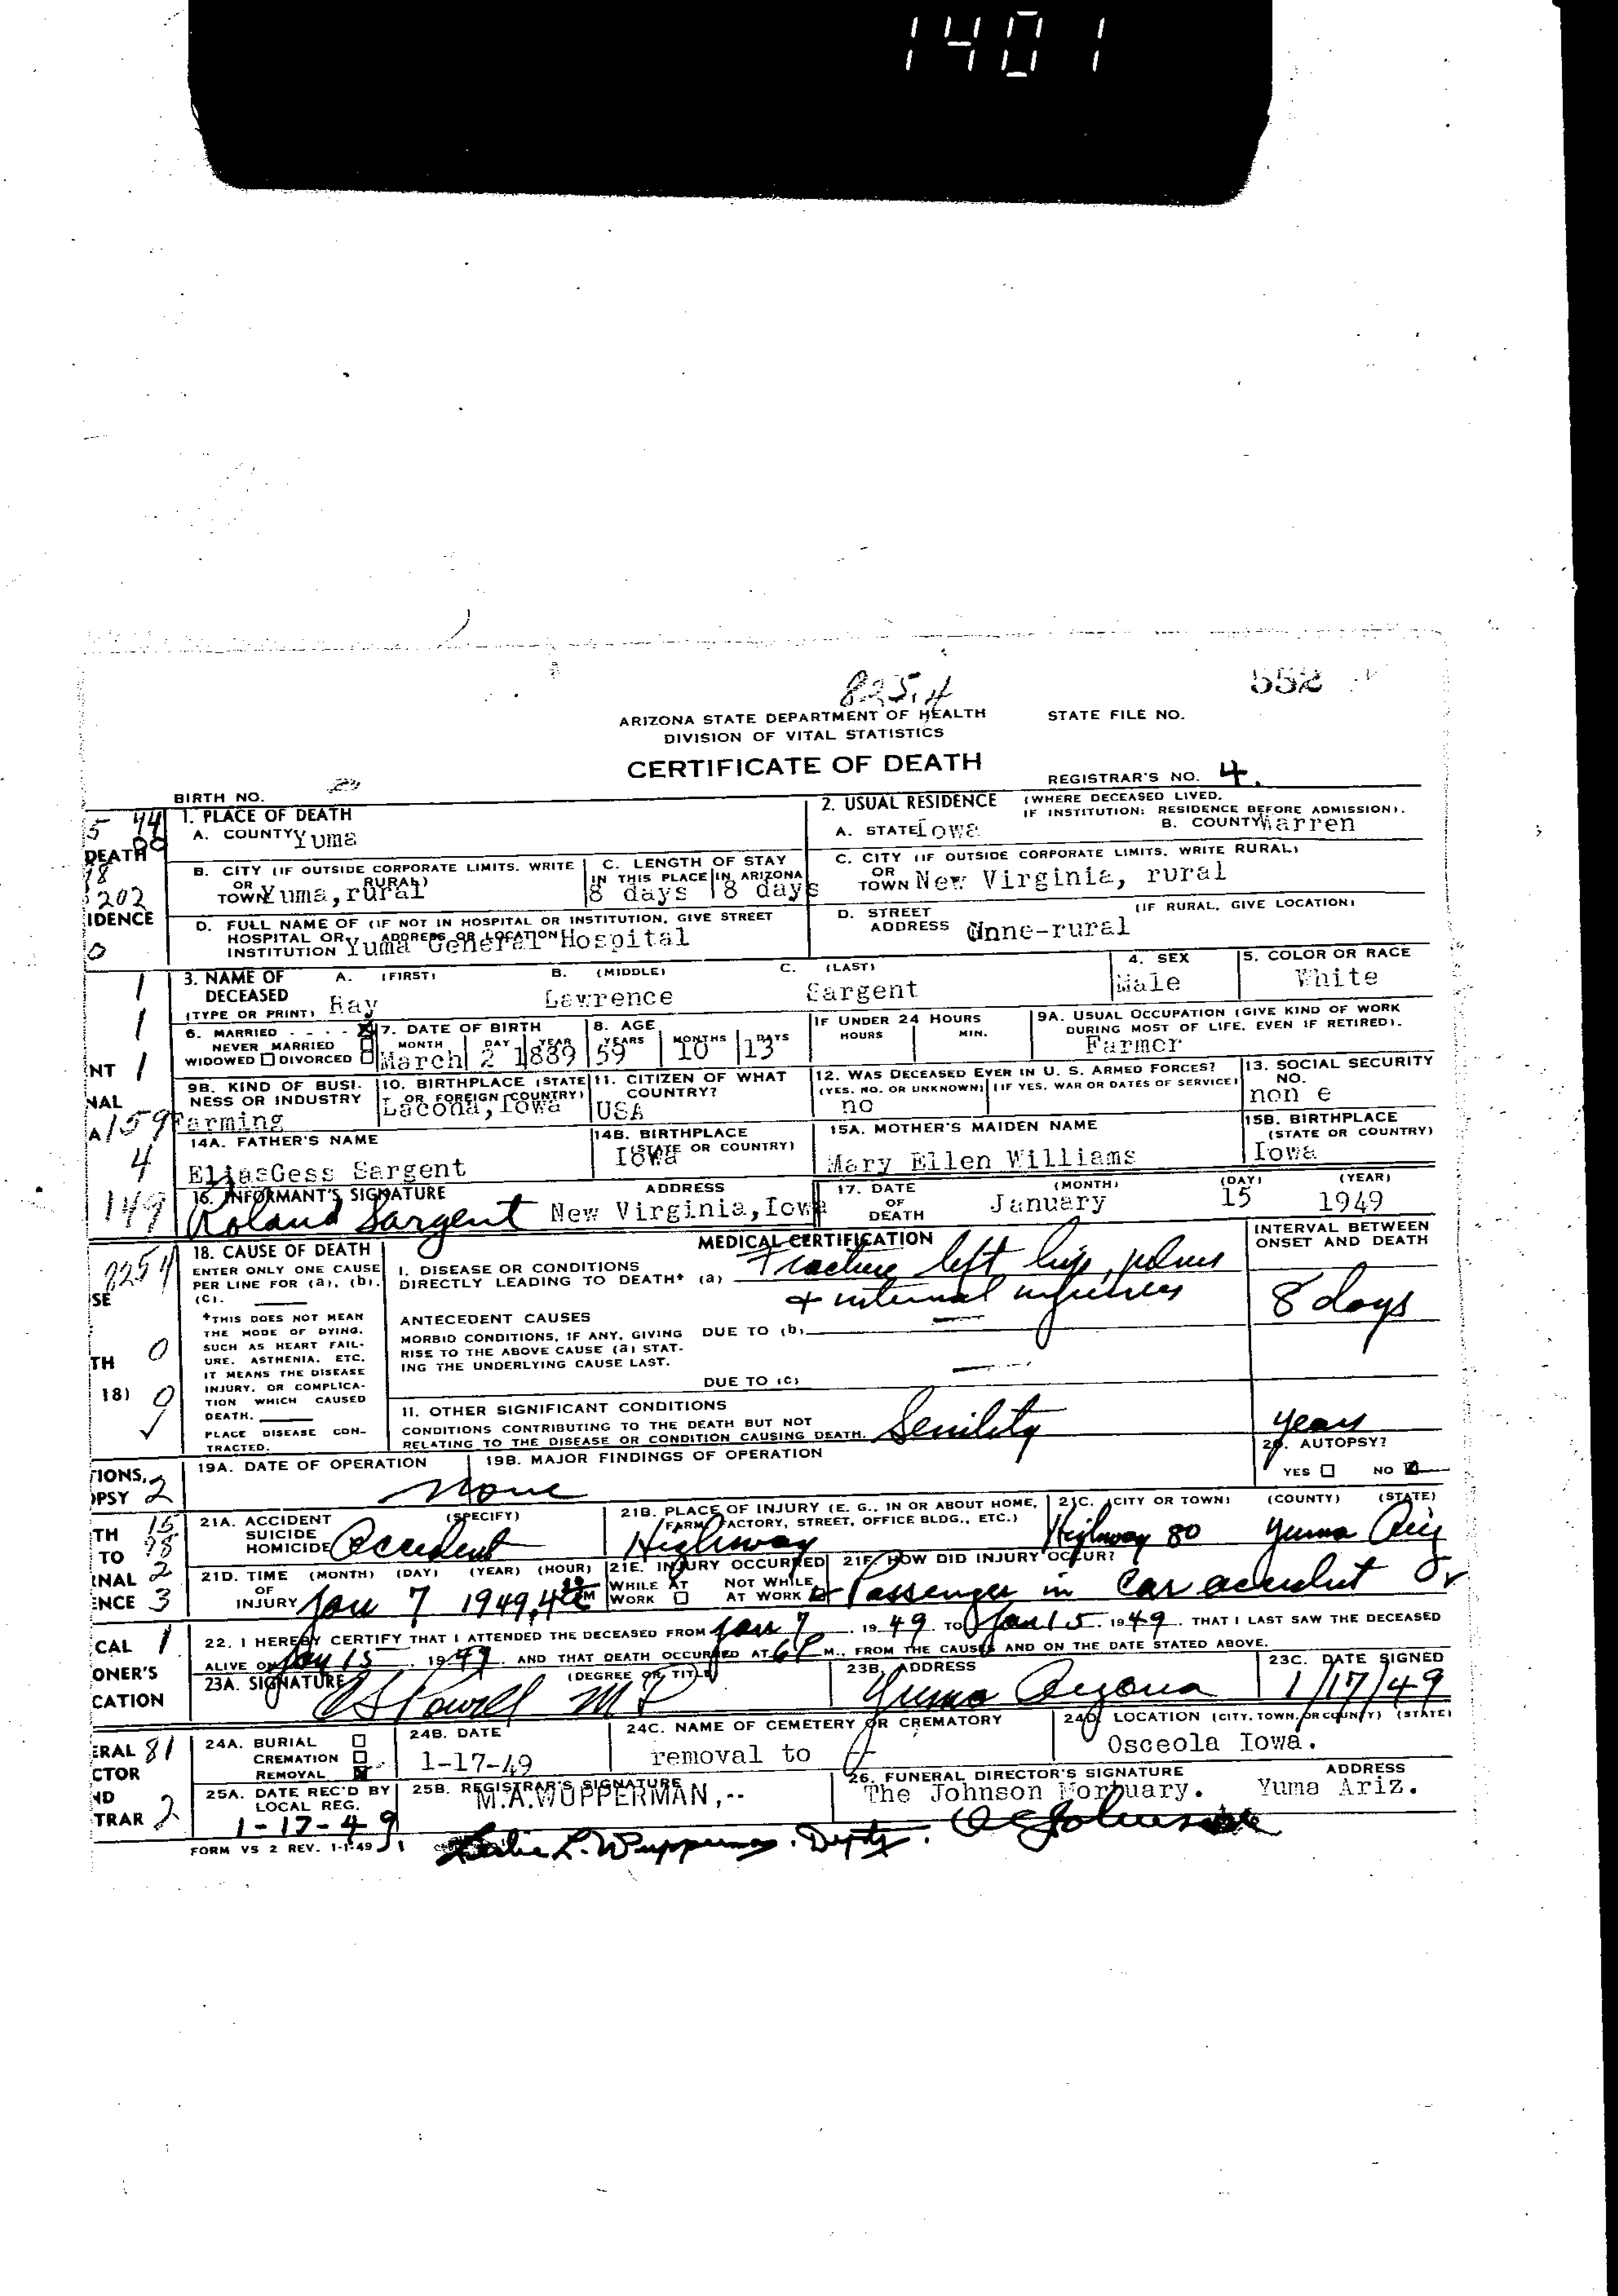 1401
825.4
552
ARIZONA STATE DEPARTMENT OF HEALTH
STATE FILE NO.
DIVISION OF VITAL STATISTICS
CERTIFICATE OF DEATH
REGISTRAR'S NO. 4.
BIRTH NO.
1. PLACE OF DEATH
A. COUNTY Yuma
2. USUAL RESIDENCE (WHERE DECEASED LIVED. IF INSTITUTION: RESIDENCE BEFORE ADMISSION).
A. STATE Iowa B. COUNTY Warren
DEATH
B. CITY (IF OUTSIDE CORPORATE LIMITS. WRITE RURAL)
OR TOWN Yuma,rural
C. LENGTH OF STAY
IN THIS PLACE 8 days IN ARIZONA 8 days
C. CITY (IF OUTSIDE CORPORATE LIMITS. WRITE RURAL)
OR TOWN New Virginia, rural
202
IDENCE
D. FULL NAME OF (IF NOT IN HOSPITAL OR INSTITUTION, GIVE STREET
HOSPITAL OR ADDRESS OR LOCATION
INSTITUTION Yuma General Hospital
D. STREET ADDRESS (IF RURAL, GIVE LOCATION)
nne-rural
3. NAME OF DECEASED (TYPE OR PRINT)
A. (FIRST) Ray
B. (MIDDLE) Lawrence
C. (LAST) Sargent
4. SEX Male
5. COLOR OR RACE White
6. MARRIED
NEVER MARRIED
WIDOWED DIVORCED
7. DATE OF BIRTH
MONTH DAY YEAR
March 2 1889
8. AGE
YEARS MONTHS DAYS
59 10 13
IF UNDER 24 HOURS
HOURS MIN.
9A. USUAL OCCUPATION (GIVE KIND OF WORK DURING MOST OF LIFE, EVEN IF RETIRED).
Farmer
9B. KIND OF BUSINESS OR INDUSTRY
159 Farming
10. BIRTHPLACE (STATE OR FOREIGN COUNTRY)
Lacona,Iowa
11. CITIZEN OF WHAT COUNTRY?
USA
12. WAS DECEASED EVER IN U. S. ARMED FORCES?
(YES, NO, OR UNKNOWN) (IF YES, WAR OR DATES OF SERVICE)
no
13. SOCIAL SECURITY NO.
non e
14A. FATHER'S NAME
EliasGess Sargent
14B. BIRTHPLACE (STATE OR COUNTRY)
Iowa
15A. MOTHER'S MAIDEN NAME
Mary Ellen Williams
15B. BIRTHPLACE (STATE OR COUNTRY)
Iowa
149
16. INFORMANT'S SIGNATURE ADDRESS
Roland Sargent New Virginia,Iowa
17. DATE OF DEATH (MONTH) (DAY) (YEAR)
January 15 1949
18. CAUSE OF DEATH
ENTER ONLY ONE CAUSE
PER LINE FOR (a), (b),
(c).
*THIS DOES NOT MEAN
THE MODE OF DYING,
SUCH AS HEART FAIL-
URE, ASTHENIA, ETC.
IT MEANS THE DISEASE
INJURY, OR COMPLICA-
TION WHICH CAUSED
DEATH.
PLACE DISEASE CON-
TRACTED.
MEDICAL CERTIFICATION
INTERVAL BETWEEN ONSET AND DEATH
I. DISEASE OR CONDITIONS
DIRECTLY LEADING TO DEATH* (a) Fracture left hip, pelvis
& internal injuries
8 days
ANTECEDENT CAUSES
MORBID CONDITIONS, IF ANY, GIVING DUE TO (b)
RISE TO THE ABOVE CAUSE (a) STAT-
ING THE UNDERLYING CAUSE LAST.
DUE TO (c)
II. OTHER SIGNIFICANT CONDITIONS
CONDITIONS CONTRIBUTING TO THE DEATH BUT NOT
RELATING TO THE DISEASE OR CONDITION CAUSING DEATH. Senility years
19A. DATE OF OPERATION
none
19B. MAJOR FINDINGS OF OPERATION
20. AUTOPSY?
YES NO
21A. ACCIDENT SUICIDE HOMICIDE (SPECIFY)
Accident
21B. PLACE OF INJURY (E. G., IN OR ABOUT HOME, FARM, FACTORY, STREET, OFFICE BLDG., ETC.)
Highway
21C. (CITY OR TOWN) (COUNTY) (STATE)
Highway 80 Yuma Ariz
21D. TIME OF INJURY (MONTH) (DAY) (YEAR) (HOUR)
Jan 7 1949
21E. INJURY OCCURRED
WHILE AT WORK NOT WHILE AT WORK
21F. HOW DID INJURY OCCUR?
Passenger in car accident
22. I HEREBY CERTIFY THAT I ATTENDED THE DECEASED FROM Jan 7, 1949 TO Jan 15, 1949. THAT I LAST SAW THE DECEASED
ALIVE ON Jan 15, 1949, AND THAT DEATH OCCURRED AT 6 P M., FROM THE CAUSES AND ON THE DATE STATED ABOVE.
23A. SIGNATURE (DEGREE OR TITLE)
Powell MD
23B. ADDRESS
Yuma Arizona
23C. DATE SIGNED
1/17/49
24A. BURIAL
CREMATION
REMOVAL
24B. DATE
1-17-49
24C. NAME OF CEMETERY OR CREMATORY
removal to
24D. LOCATION (CITY, TOWN, OR COUNTY) (STATE)
Osceola Iowa.
25A. DATE REC'D BY LOCAL REG.
1-17-49
25B. REGISTRAR'S SIGNATURE
M.A.WUPPERMAN,--
Leslie L. Wupperman. Dpty.
26. FUNERAL DIRECTOR'S SIGNATURE ADDRESS
The Johnson Mortuary. Yuma Ariz.
Johnson
FORM VS 2 REV. 1-1-49